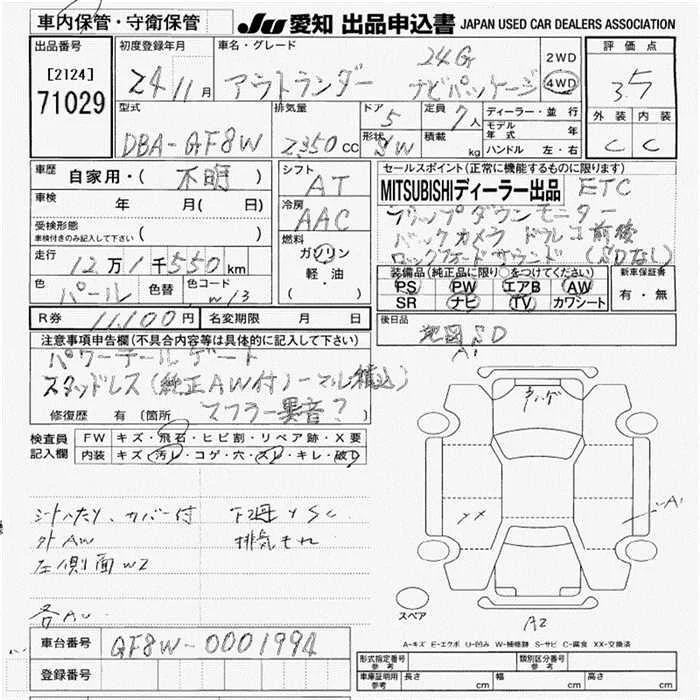 車内保管・守衛保管
JU 愛知 出品申込書 JAPAN USED CAR DEALERS ASSOCIATION
出品番号
[2124]
71029
初度登録年月
24 11月
車名・グレード
アウトランダー
24G
ナビパッケージ
2WD
4WD
評価点
3.5
外装 内装
C C
型式
DBA-GF8W
排気量
2350cc
ドア 5
形状 SW
定員 7人
積載 kg
ディーラー・並行
モデル年式 年
ハンドル 左・右
車歴
自家用・(不明)
車検
年 月(日)
受検形態
車検付きのみ記入して下さい ( )
走行
12万1千550km
色
パール
色替
色コード
W13
シフト
AT
冷房
AAC
燃料
ガソリン
軽油
( )
セールスポイント(正常に機能するものに限ります)
MITSUBISHIディーラー出品 ETC
フリップダウンモニター
バックカメラ ドラレコ前後
ロックフォードサウンド (SDなし)
装備品(純正品に限り○をつけてください)
PS PW エアB AW
SR ナビ TV カワシート
新車保証書
有・無
R券 11,100円
名変期限 月 日
後日品
地図SD
注意事項申告欄(不具合内容等は具体的に記入して下さい)
パワーテールゲート
スタッドレス(純正AW付ノーマル積込)
マフラー異音?
修復歴 有 (箇所
検査員記入欄
FW キズ・飛石・ヒビ割・リペア跡・X要
内装 キズ・汚レ・コゲ・穴・スレ・キレ・破レ
シートヘタリ、カバー付 下廻りSC
外AW 排気モレ
左側面W2
各AU
A1
XX
A1
A2
スペア
A-キズ E-エクボ U-凹み W-補修跡 S-サビ C-腐食 XX-交換済
車台番号
GF8W-0001994
登録番号
形式指定番号 参考
類別区分番号 参考
車庫証明用 参考
長さ cm 幅 cm 高さ cm